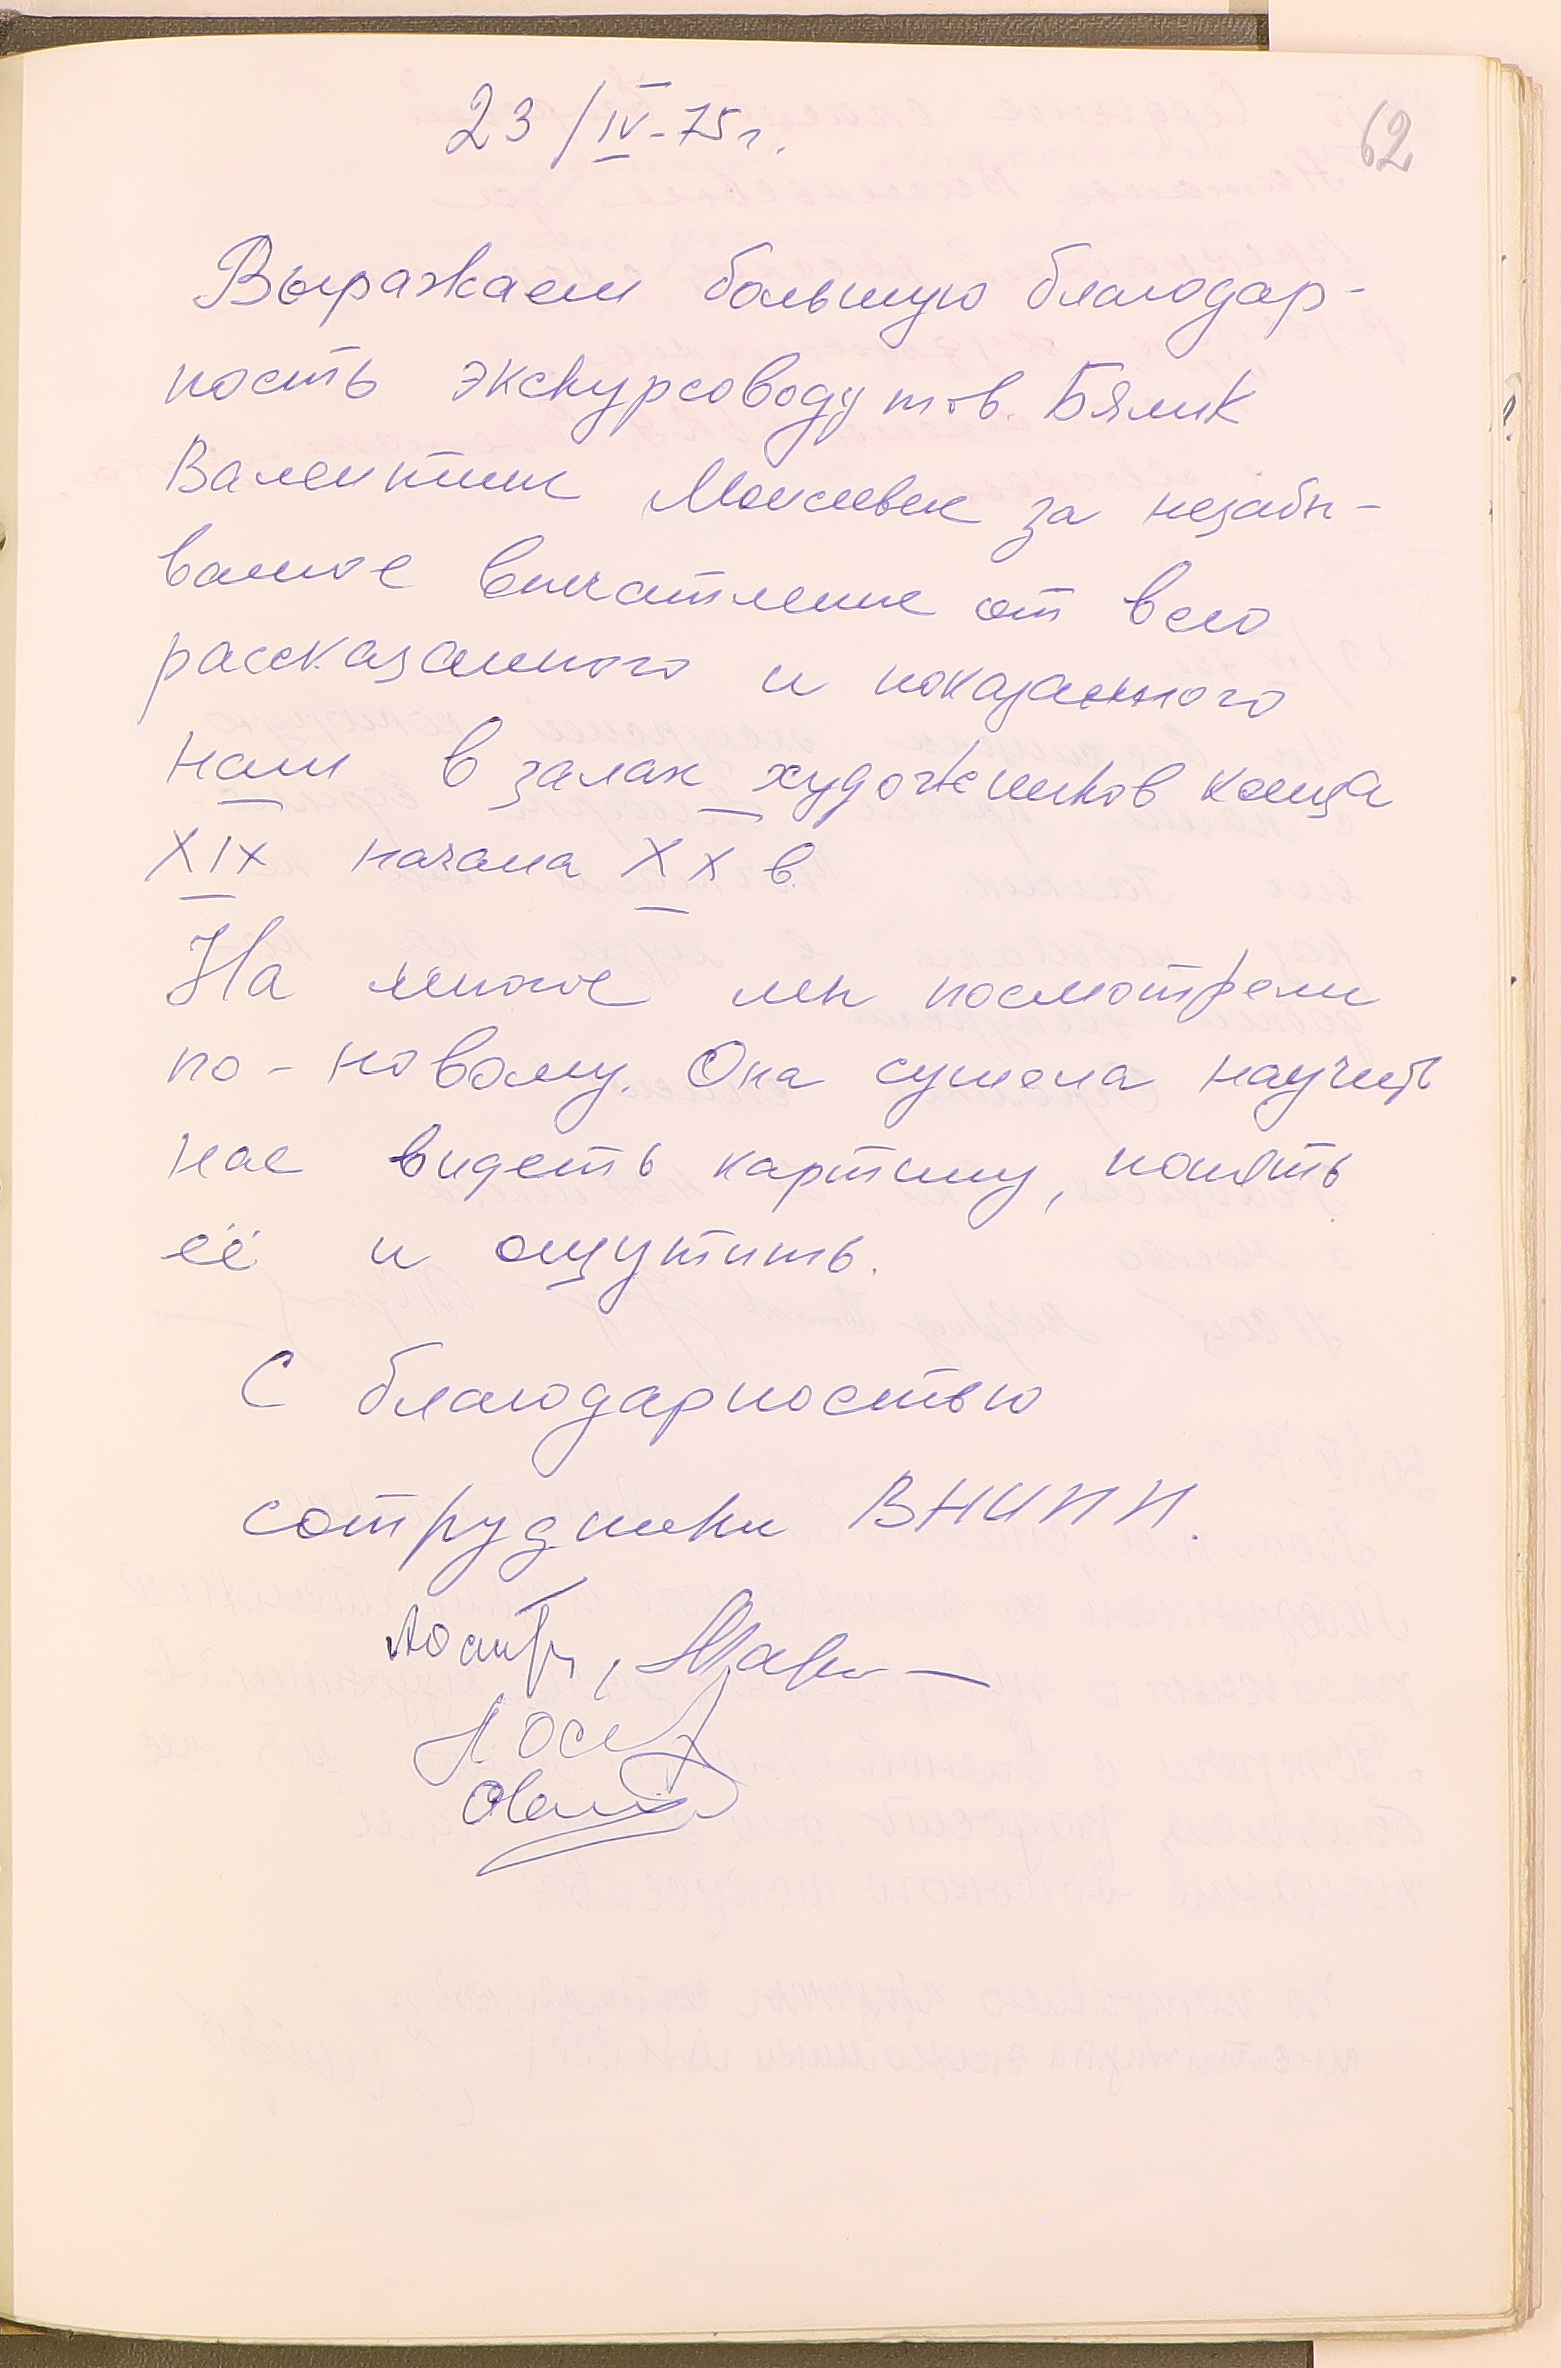 23/IV-75г.
62
Выражаем большую благодар-
ность экскурсоводу тов. Бялик
Валентине Моисеевне за незабы-
ваемое впечатление от всего
рассказанного и показанного
нам в залах художников конца
XIX начала XX в.
На многое мы посмотрели
по-новому. Она сумела научить
нас видеть картину, понять
её и ощутить.
С благодарностью
сотрудники ВНИИ